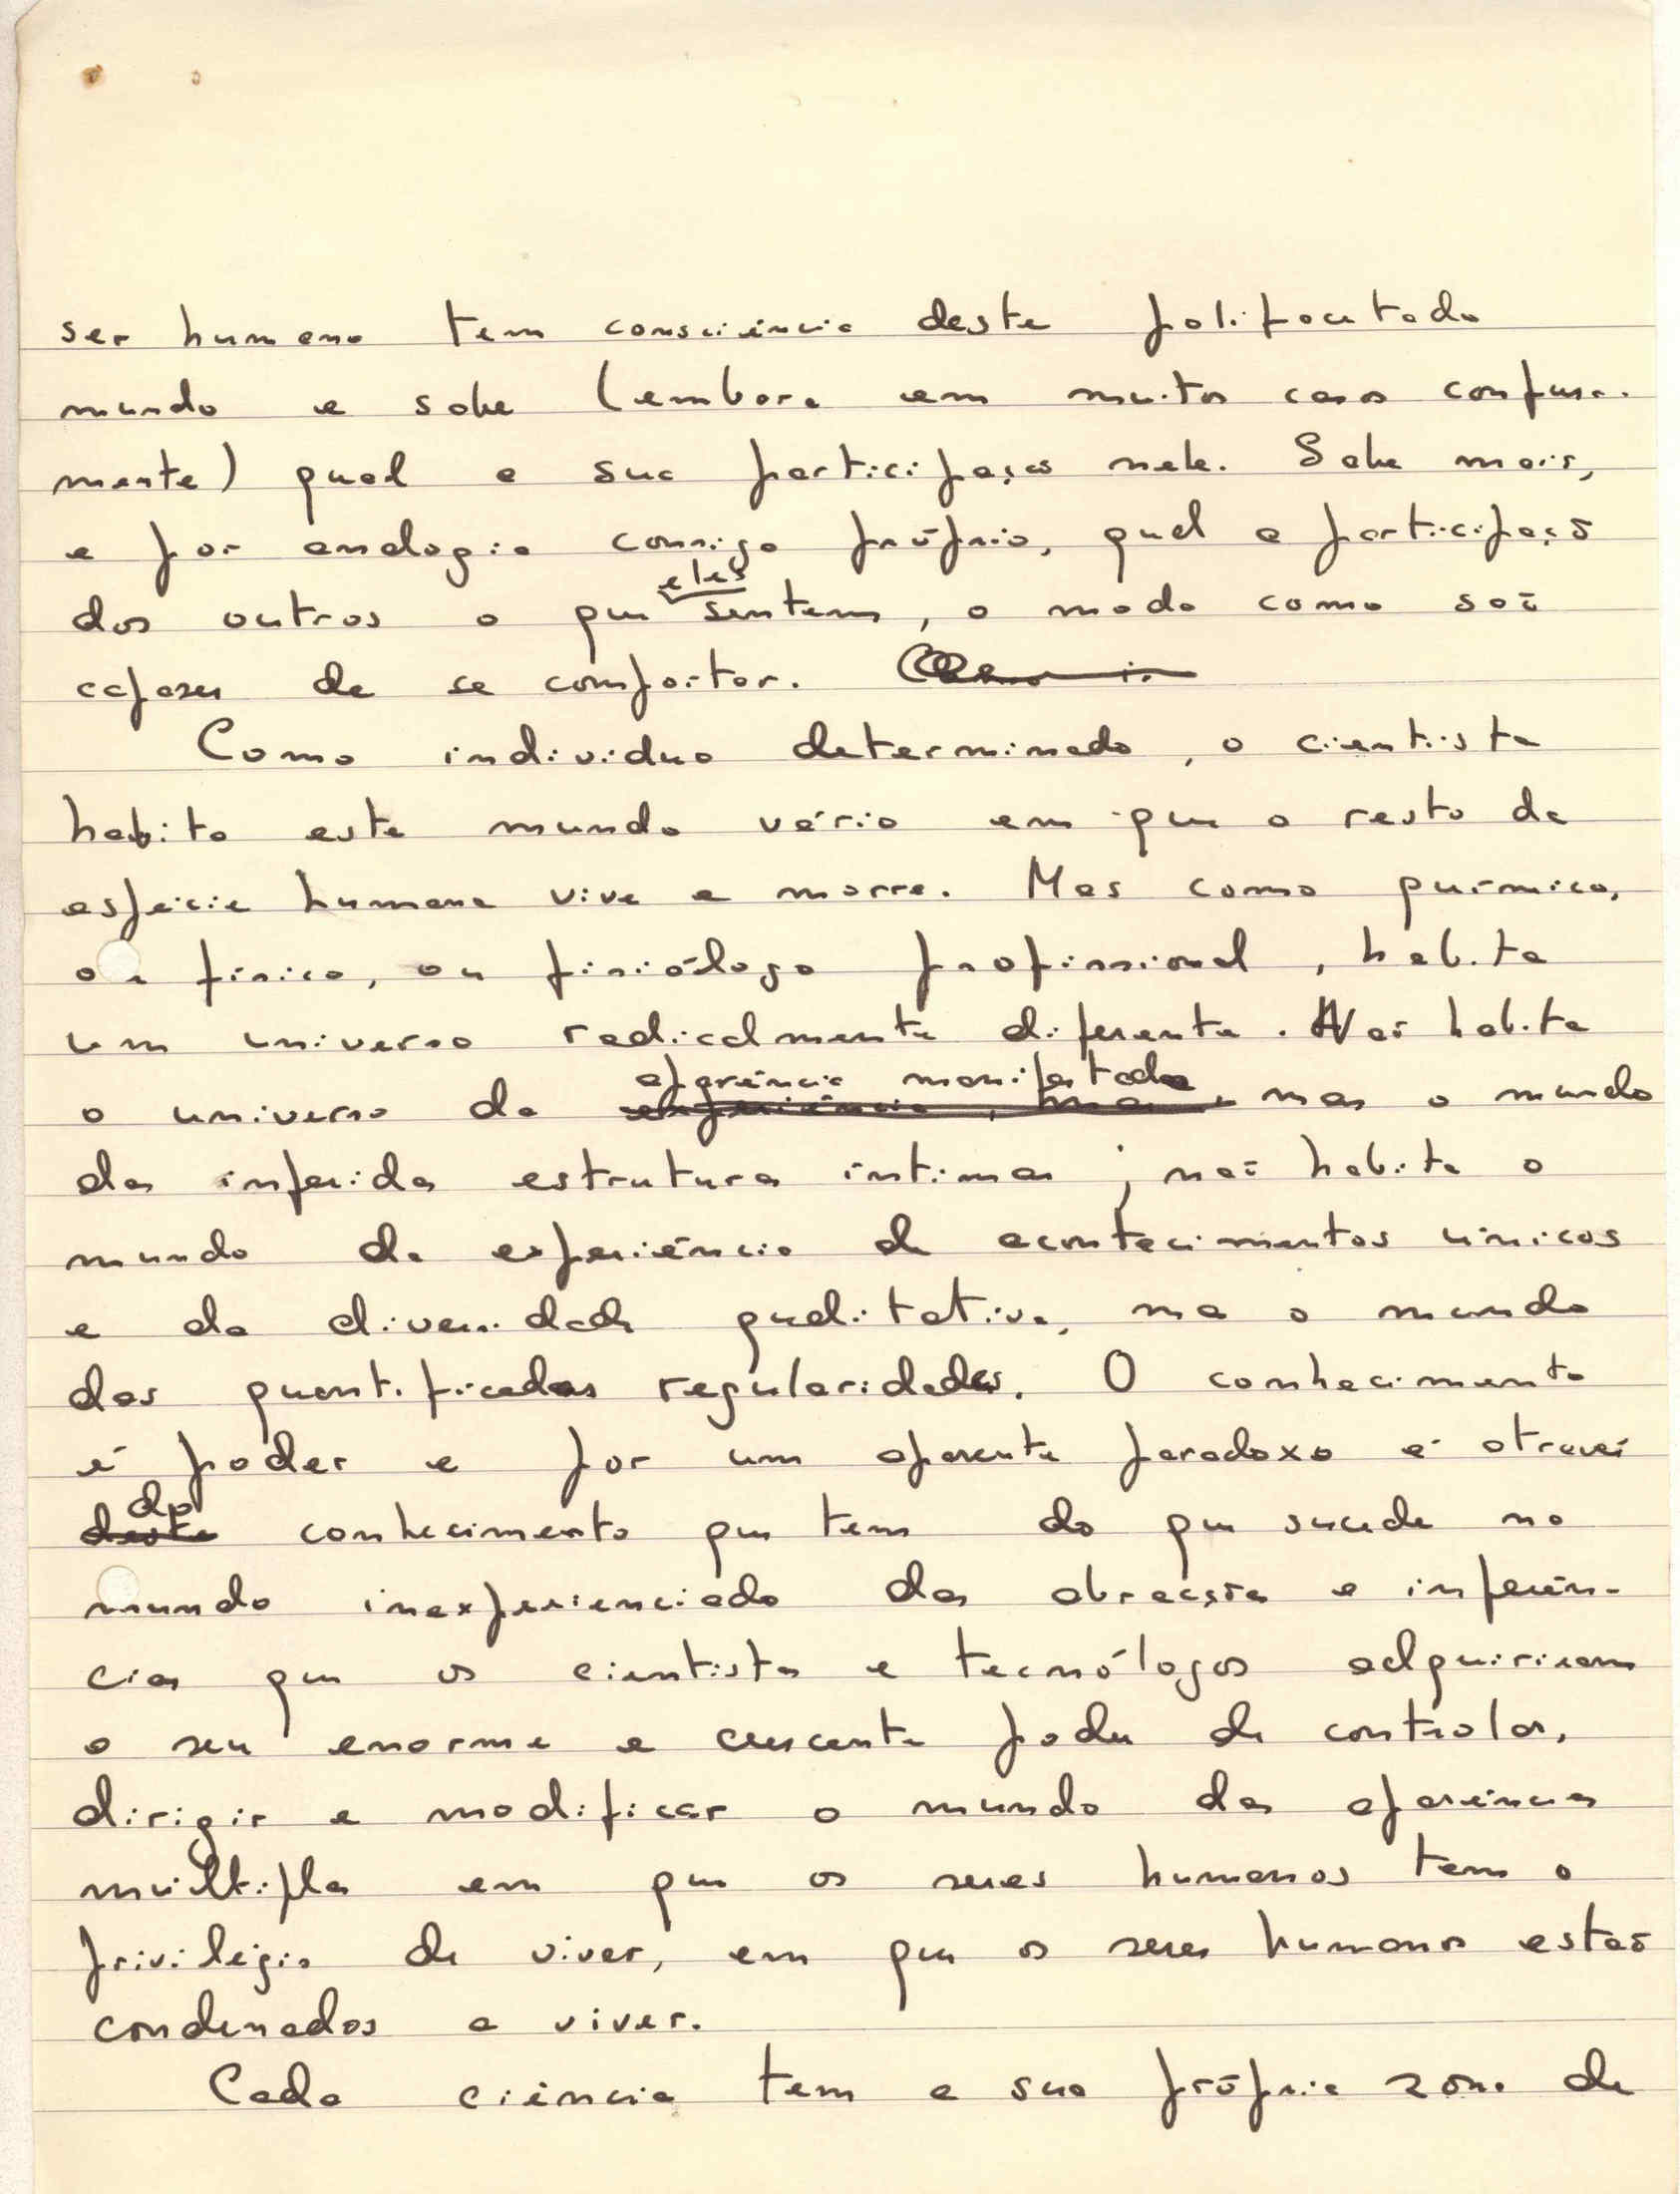 ser humano tem consciência deste polifacetado
mundo e sabe (embora em muitos casos confusa-
mente) qual a sua participação nele. Sabe mais,
e por analogia consigo próprio, qual a participação
dos outros o que eles sentem, o modo como são
capazes de se comportar.
Como individuo determinado, o cientista
habita este mundo vário em que o resto da
espécie humana vive e morre. Mas como químico,
ou físico, ou fisiólogo profissional, habita
um universo radicalmente diferente. Não habita
o universo da experiência, mas aparência manifestada mas o mundo
da inferida estrutura íntima; não habita o
mundo da experiência de acontecimentos únicos
e da diversidade qualitativa, mas o mundo
das quantificadas regularidades. O conhecimento
é poder e por um aparente paradoxo é através
deste do conhecimento que tem do que sucede no
mundo inexperienciado das abstracções e inferên-
cias que os cientistas e tecnólogos adquiriram
o seu enorme e crescente poder de controlar,
dirigir e modificar o mundo das aparências
múltiplas em que os seres humanos tem o
privilégio de viver, em que os seres humanos estão
condenados a viver.
Cada ciência tem a sua própria zona de